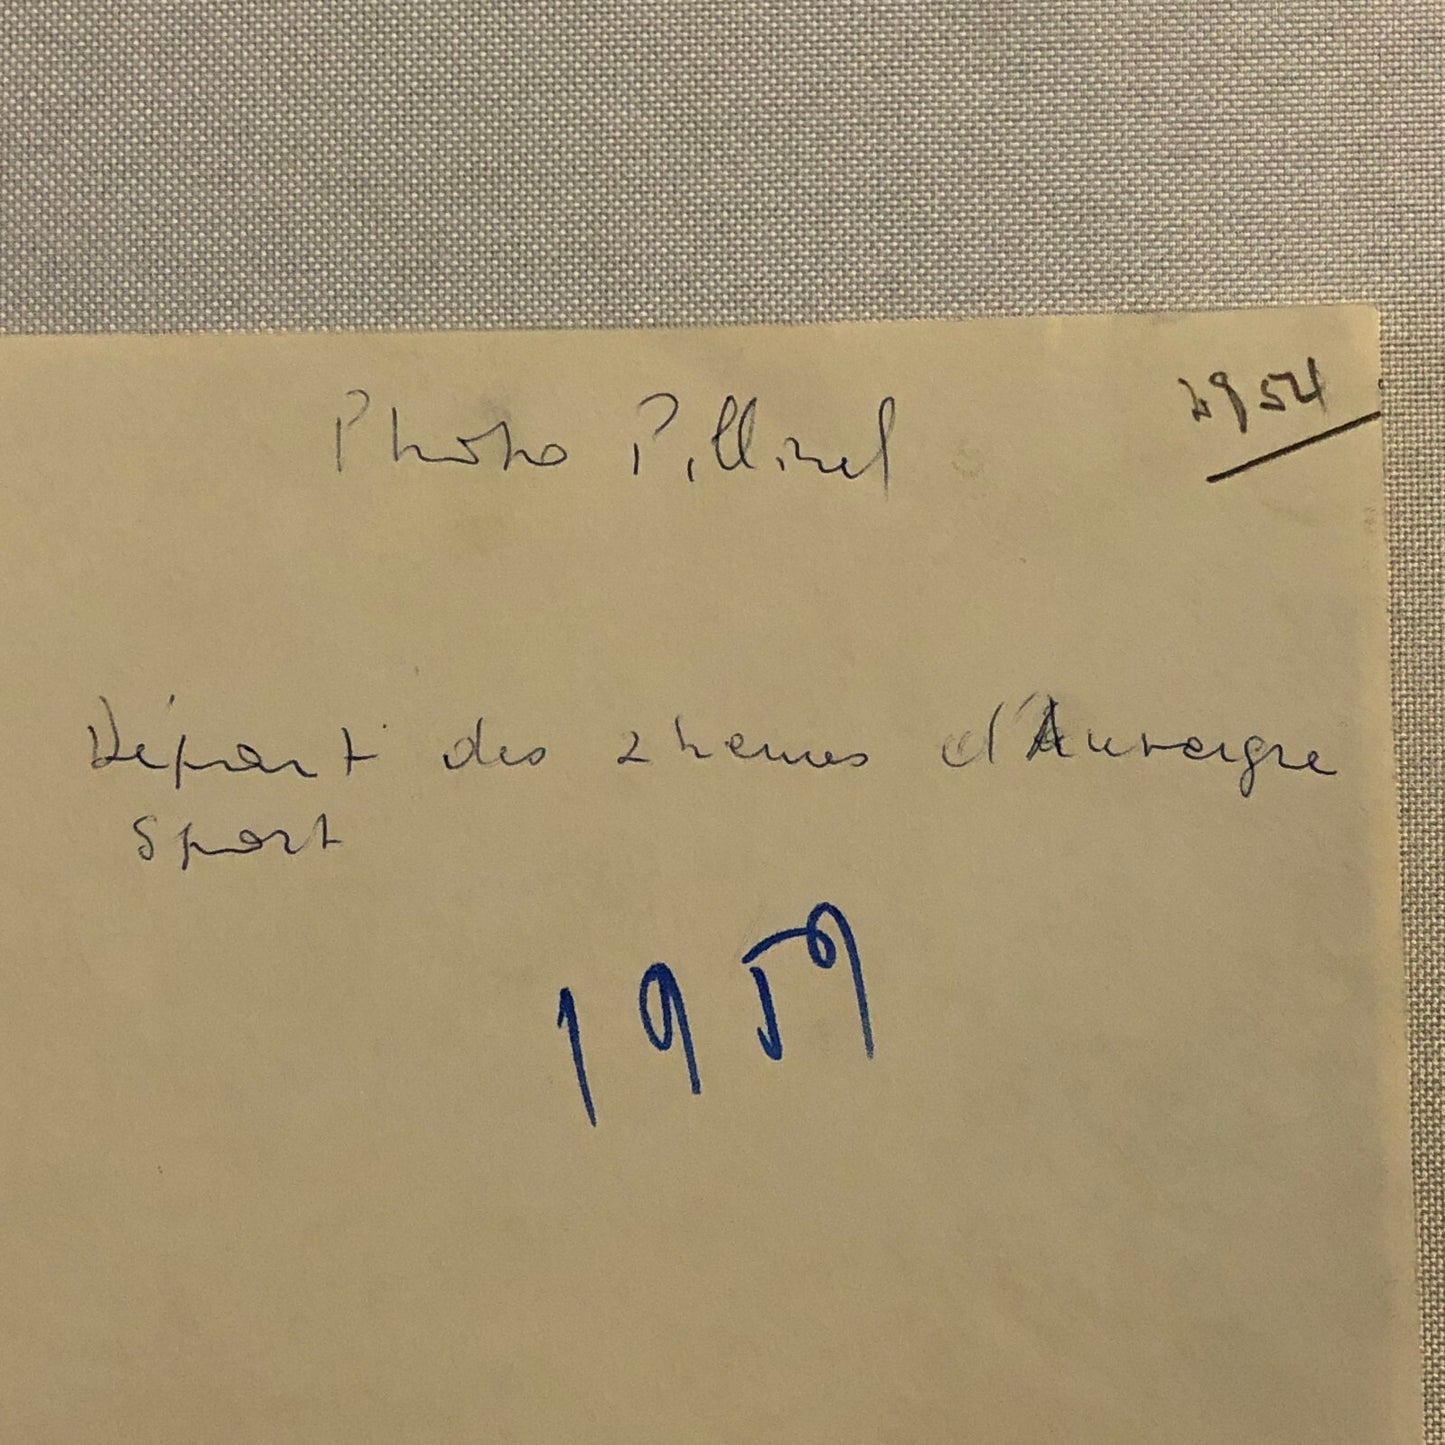 Photo
Départ des 2 heures d'Auvergne
Sport
1959